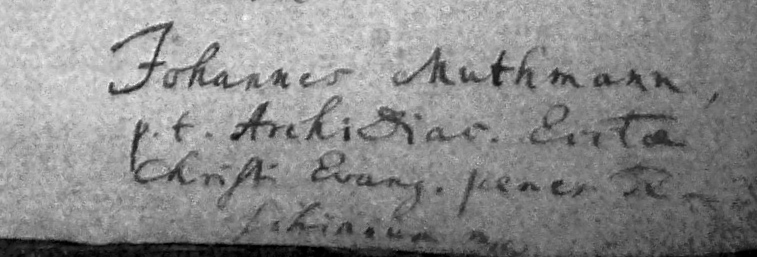 Johannes Muthmann,
p. t. ArchiDiac. Eccles
Christi Evang. penes Te-
schinum mp